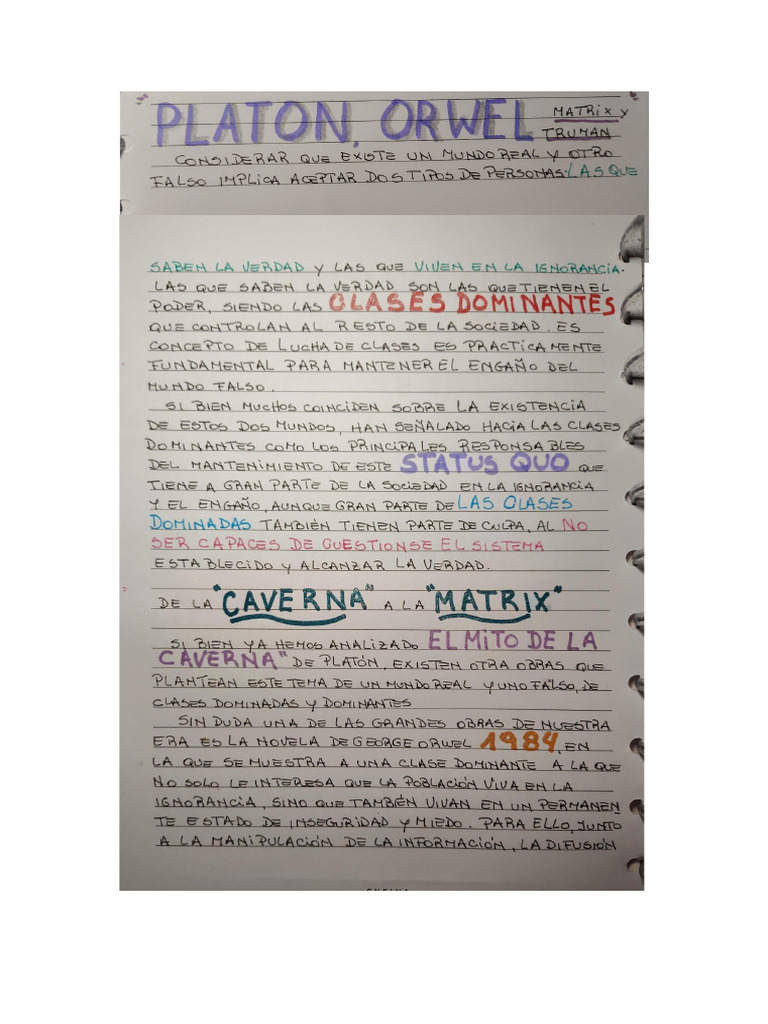 "PLATON, ORWEL MATRIX Y
TRUMAN"
CONSIDERAR QUE EXISTE UN MUNDO REAL Y OTRO
FALSO IMPLICA ACEPTAR DOS TIPOS DE PERSONAS: LAS QUE
SABEN LA VERDAD Y LAS QUE VIVEN EN LA IGNORANCIA.
LAS QUE SABEN LA VERDAD SON LAS QUE TIENEN EL
PODER, SIENDO LAS CLASES DOMINANTES
QUE CONTROLAN AL RESTO DE LA SOCIEDAD. ES
CONCEPTO DE LUCHA DE CLASES ES PRACTICAMENTE
FUNDAMENTAL PARA MANTENER EL ENGAÑO DEL
MUNDO FALSO.
SI BIEN MUCHOS COINCIDEN SOBRE LA EXISTENCIA
DE ESTOS DOS MUNDOS, HAN SEÑALADO HACIA LAS CLASES
DOMINANTES COMO LOS PRINCIPALES RESPONSABLES
DEL MANTENIMIENTO DE ESTE STATUS QUO QUE
TIENE A GRAN PARTE DE LA SOCIEDAD EN LA IGNORANCIA
Y EL ENGAÑO, AUNQUE GRAN PARTE DE LAS CLASES
DOMINADAS TAMBIÉN TIENEN PARTE DE CULPA, AL NO
SER CAPACES DE CUESTIONSE EL SISTEMA
ESTABLECIDO Y ALCANZAR LA VERDAD.
DE LA "CAVERNA" A LA "MATRIX"
SI BIEN YA HEMOS ANALIZADO EL MITO DE LA
CAVERNA" DE PLATÓN, EXISTEN OTRA OBRAS QUE
PLANTEAN ESTE TEMA DE UN MUNDO REAL Y UNO FALSO, DE
CLASES DOMINADAS Y DOMINANTES
SIN DUDA UNA DE LAS GRANDES OBRAS DE NUESTRA
ERA ES LA NOVELA DE GEORGE ORWEL 1984, EN
LA QUE SE MUESTRA A UNA CLASE DOMINANTE A LA QUE
NO SOLO LE INTERESA QUE LA POBLACIÓN VIVA EN LA
IGNORANCIA, SINO QUE TAMBIÉN VIVAN EN UN PERMANEN
TE ESTADO DE INSEGURIDAD Y MIEDO. PARA ELLO, JUNTO
A LA MANIPULACIÓN DE LA INFORMACIÓN, LA DIFUSIÓN